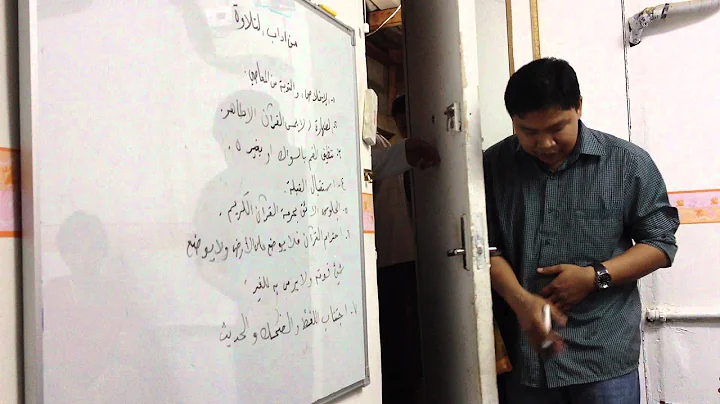 من آداب التلاوة
١- الإخلاص والتوبة من المعاصي.
٢- لطهارة ولا يمس القرآن إلا طاهر.
٣- تنظيف الفم بالسواك أو بغيره
٤- استقبال القبلة.
٥- الجلوس اللائق بحرمة القرآن الكريم.
٦- احترام القرآن فلا يوضع على الأرض ولا يوضع
شيئ فوقه ولا يرمى به للغير
٧- اجتناب اللغط والضحك والحديث